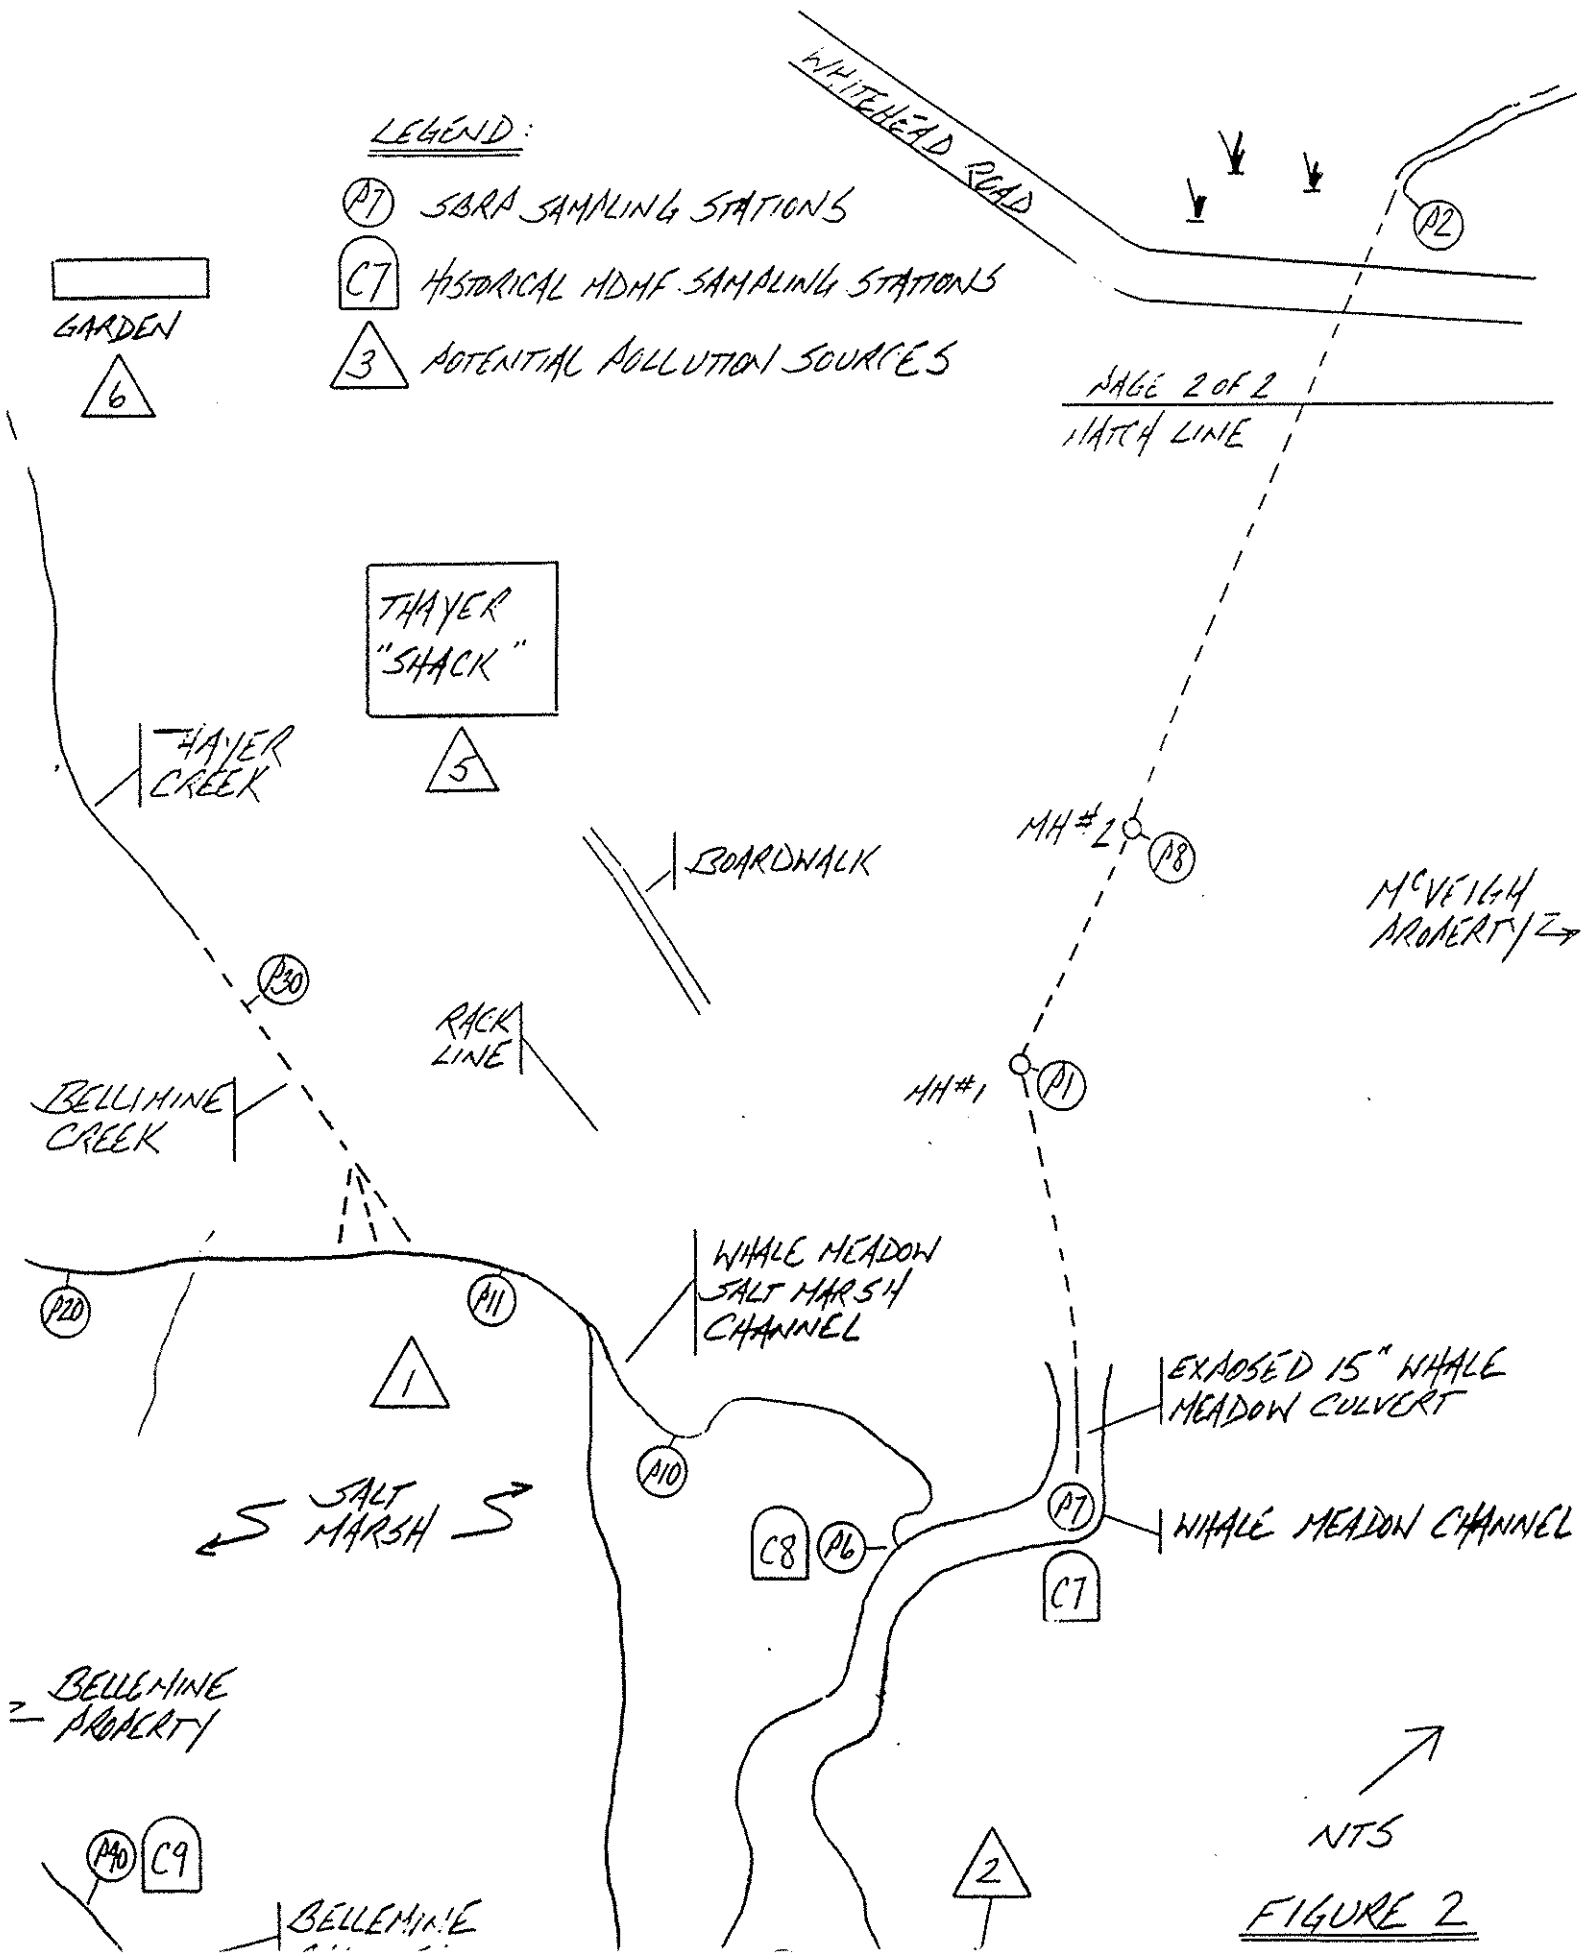 WHITEHEAD ROAD
LEGEND:
P7 SBRP SAMPLING STATIONS
C7 HISTORICAL MDMF SAMPLING STATIONS
3 POTENTIAL POLLUTION SOURCES
GARDEN
6
P2
PAGE 2 OF 2
MATCH LINE
THAYER
"SHACK"
5
THAYER
CREEK
BOARDWALK
MH#2
P8
McVEIGH
PROPERTY
P30
RACK
LINE
MH#1
P1
BELLIMINE
CREEK
P20
P11
WHALE MEADOW
SALT MARSH
CHANNEL
1
EXPOSED 15" WHALE
MEADOW CULVERT
P10
SALT
MARSH
C8
P6
P7
WHALE MEADOW CHANNEL
C7
BELLEMINE
PROPERTY
P40
C9
2
NTS
BELLEMINE
FIGURE 2